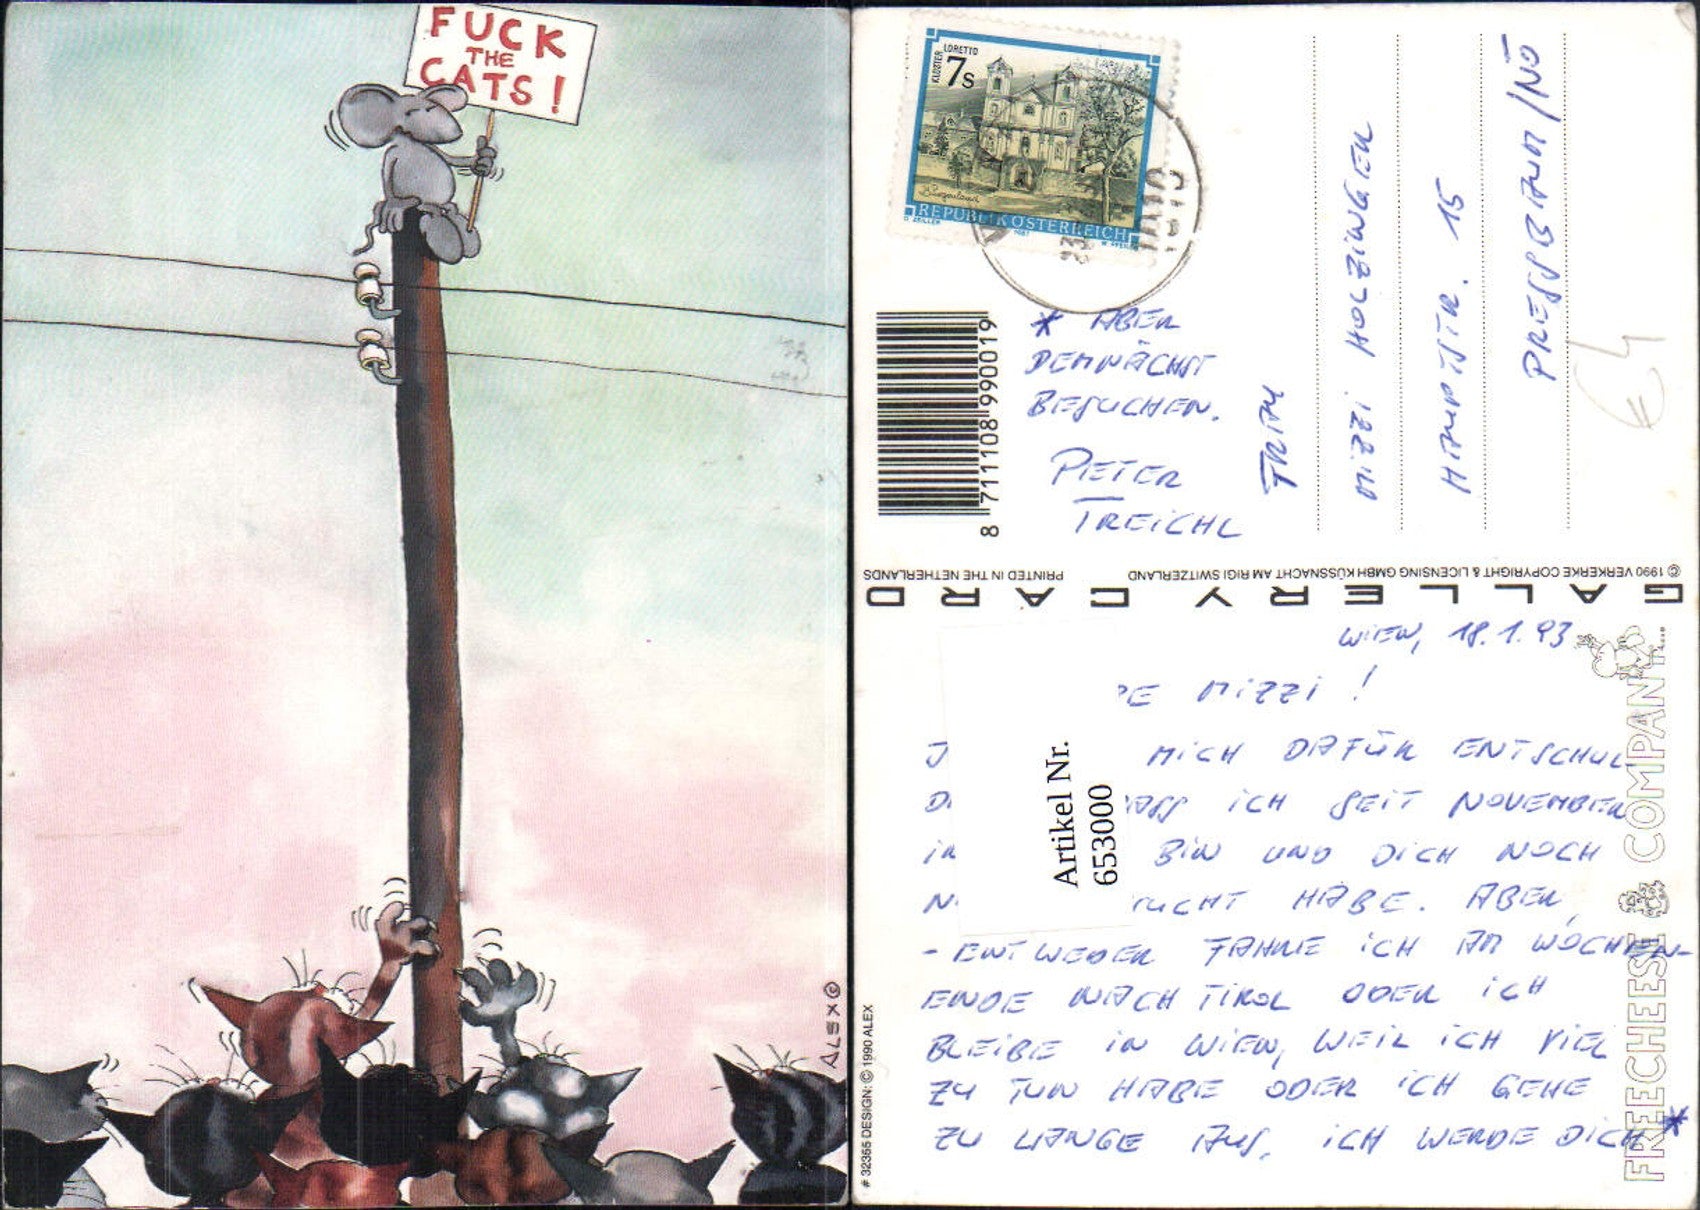 FUCK
THE
CATS!
ALEX ©
KLOSTER LORETTO
7s
Burgenland
REPUBLIK ÖSTERREICH
8 711108 990019
* ABER
DEMNÄCHST
BESUCHEN.
PETER
TREICHL
FRAU
MIZZI HOLZINGER
HAUPTSTR. 15
PRESSBAUM/NÖ
€ 4
© 1990 VERKERKE COPYRIGHT & LICENSING GMBH KÜSSNACHT AM RIGI SWITZERLAND PRINTED IN THE NETHERLANDS
GALLERY CARD
WIEN, 18.1.93
BE MIZZI!
MICH DAFÜR ENTSCHUL-
ASS ICH SEIT NOVEMBER
BIN UND DICH NOCH
SUCHT HABE. ABER,
- ENTWEDER FAHRE ICH AM WOCHEN-
ENDE NACH TIROL ODER ICH
BLEIBE IN WIEN, WEIL ICH VIEL
ZU TUN HABE ODER ICH GEHE
ZU LANGE AUS. ICH WERDE DICH *
Artikel Nr.
653000
FREECHEESE & COMPANY...
# 32355 DESIGN: © 1990 ALEX